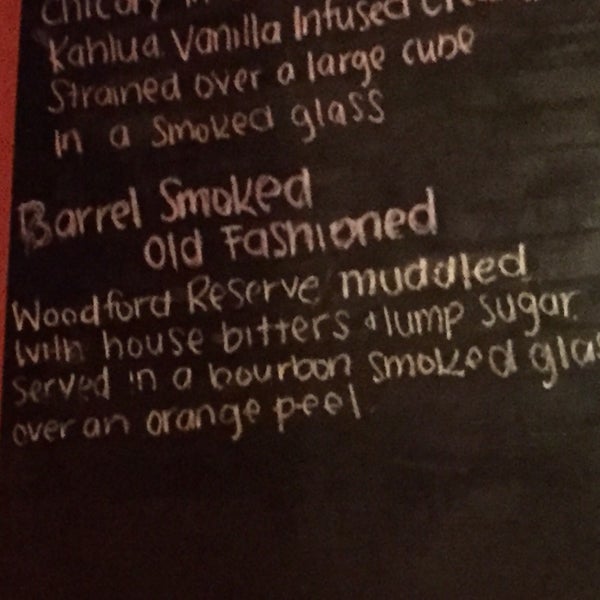 Chicory
Kahlua Vanilla Infused
Strained over a large cube
in a smoked glass
Barrel Smoked
Old Fashioned
Woodford Reserve muddled
with house bitters & lump sugar.
Served in a bourbon smoked glas
over an orange peel.